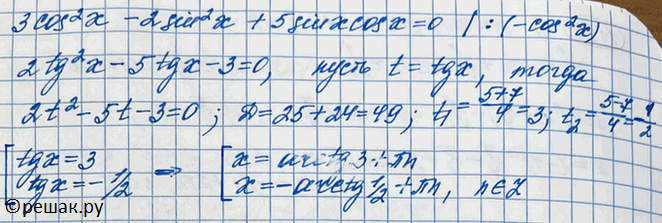 3cos²x - 2sin²x + 5sinxcosx = 0 | : (-cos²x)
2tg²x - 5tgx - 3 = 0, пусть t = tgx, тогда
2t² - 5t - 3 = 0; D = 25 + 24 = 49; t₁ = (5+7)/4 = 3; t₂ = (5-7)/4 = -1/2
[tgx = 3 ⇒ [x = arctg 3 + πn
tgx = -1/2 x = -arctg 1/2 + πn, n∈Z
©решак.ру